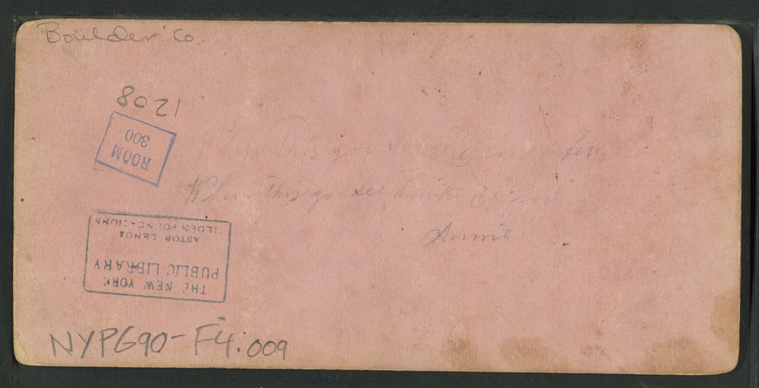 Boulder Co.
8021
ROOM
300
When this you see think of me
Annie
THE NEW YORK
PUBLIC LIBRARY
ASTOR LENOX
TILDEN FOUNDATIONS
NYPG90-F4.009